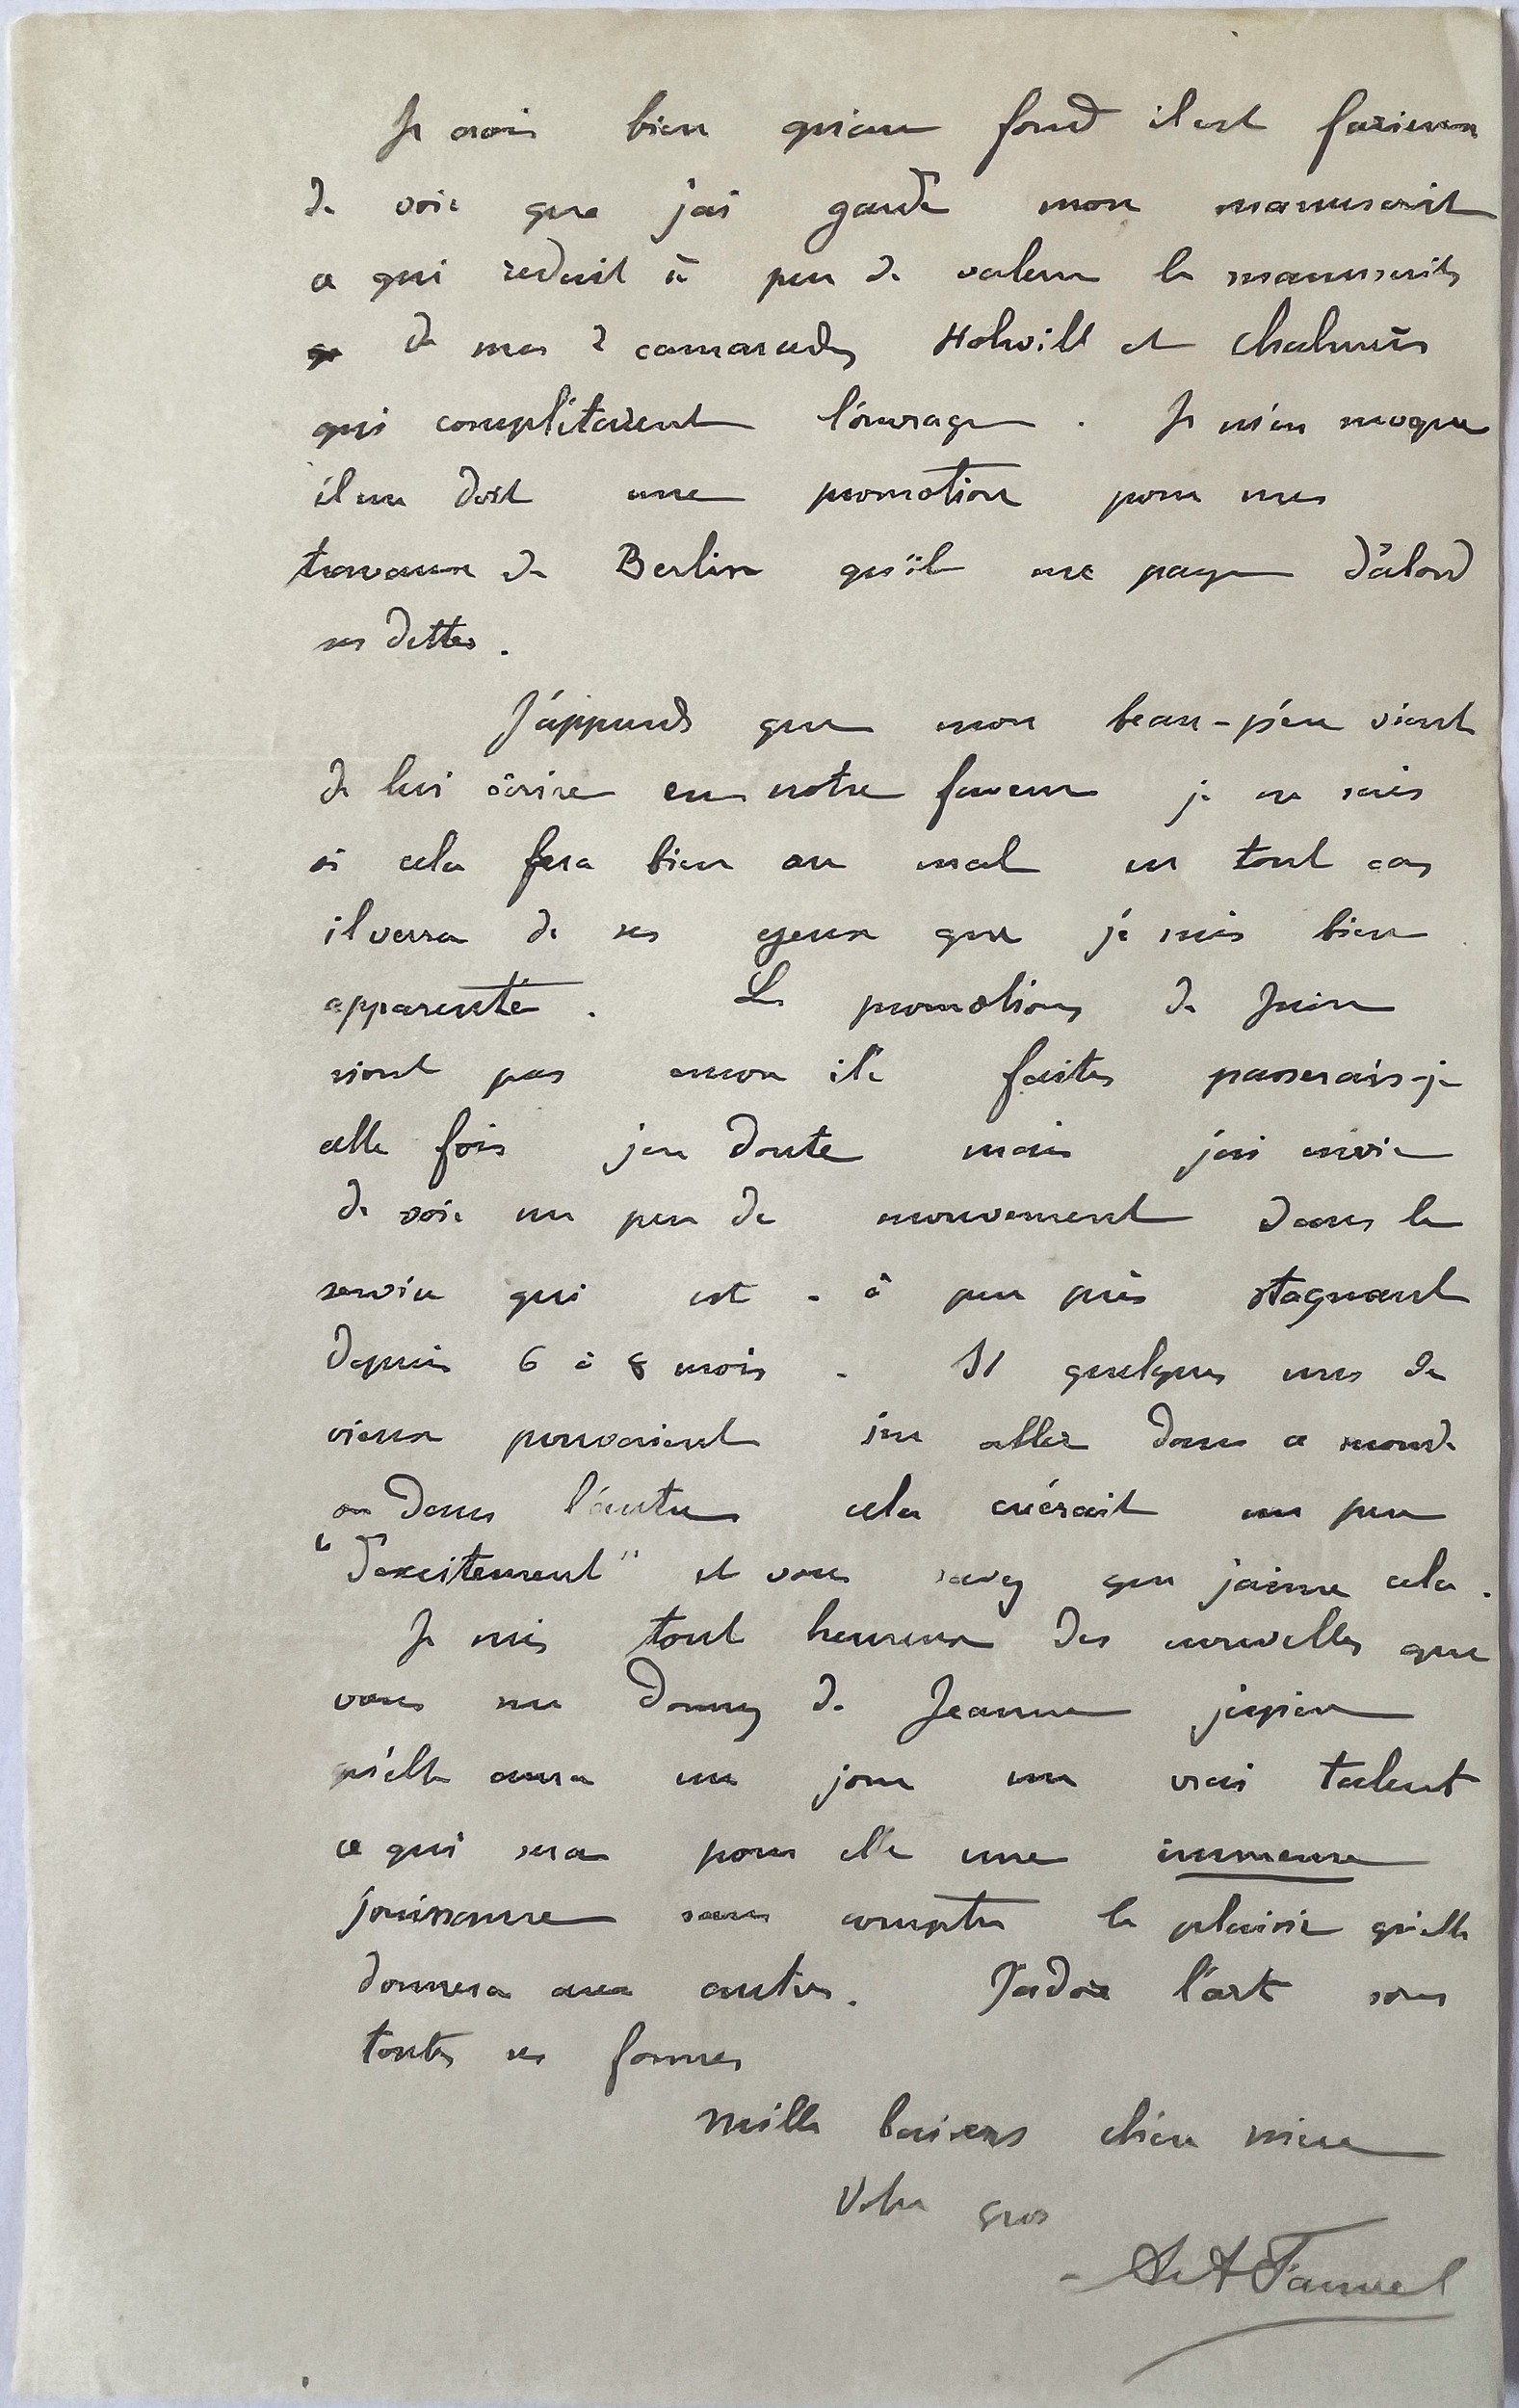 Je crois bien qu'au fond il est furieux
de voir que j'ai gardé mon manuscrit
ce qui réduit à peu de valeur le manuscrits
de mes 2 camarades et
qui complétaient l'ouvrage. Je m'en moque
il me doit une promotion pour mes
travaux de Berlin qu'il me paye d'abord
ses dettes.
J'apprends que mon beau-père vient
de lui écrire en notre faveur je ne sais
si cela fera bien ou mal en tout cas
il verra de ses yeux que je suis bien
apparenté. Les promotions de Juin
n'ont pas encore été faites passerais-je
cette fois j'en doute mais j'ai envie
de voir un peu de mouvement dans le
service qui est à peu près stagnant
depuis 6 à 8 mois. Si quelques uns de
vieux pouvaient s'en aller dans ce monde
ou dans l'autre cela créerait un peu
"d'excitement" et vous savez que j'aime cela.
Je suis tout heureux des nouvelles que
vous me donnez de Jeanne j'espère
qu'elle aura un jour un vrai talent
ce qui sera pour elle une immense
jouissance sans compter le plaisir qu'elle
donnera aux autres. J'adore l'art sous
toutes ses formes
Mille baisers chère mère
Votre gros
Fauvel